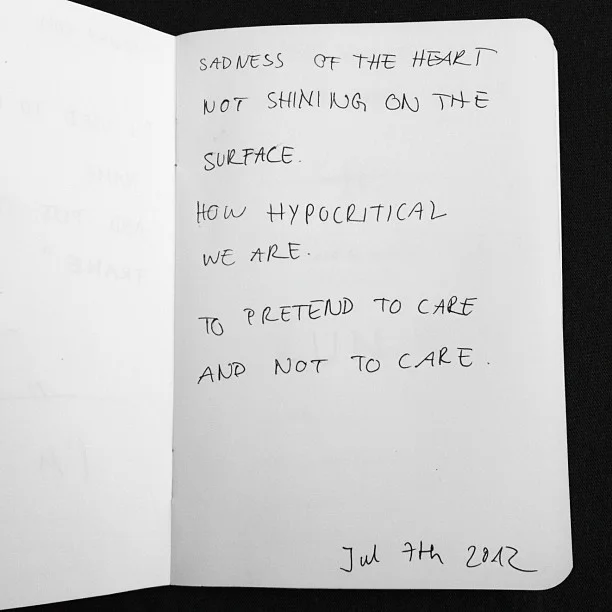 SADNESS OF THE HEART
NOT SHINING ON THE
SURFACE.
HOW HYPOCRITICAL
WE ARE.
TO PRETEND TO CARE
AND NOT TO CARE.
Jul 7th 2012